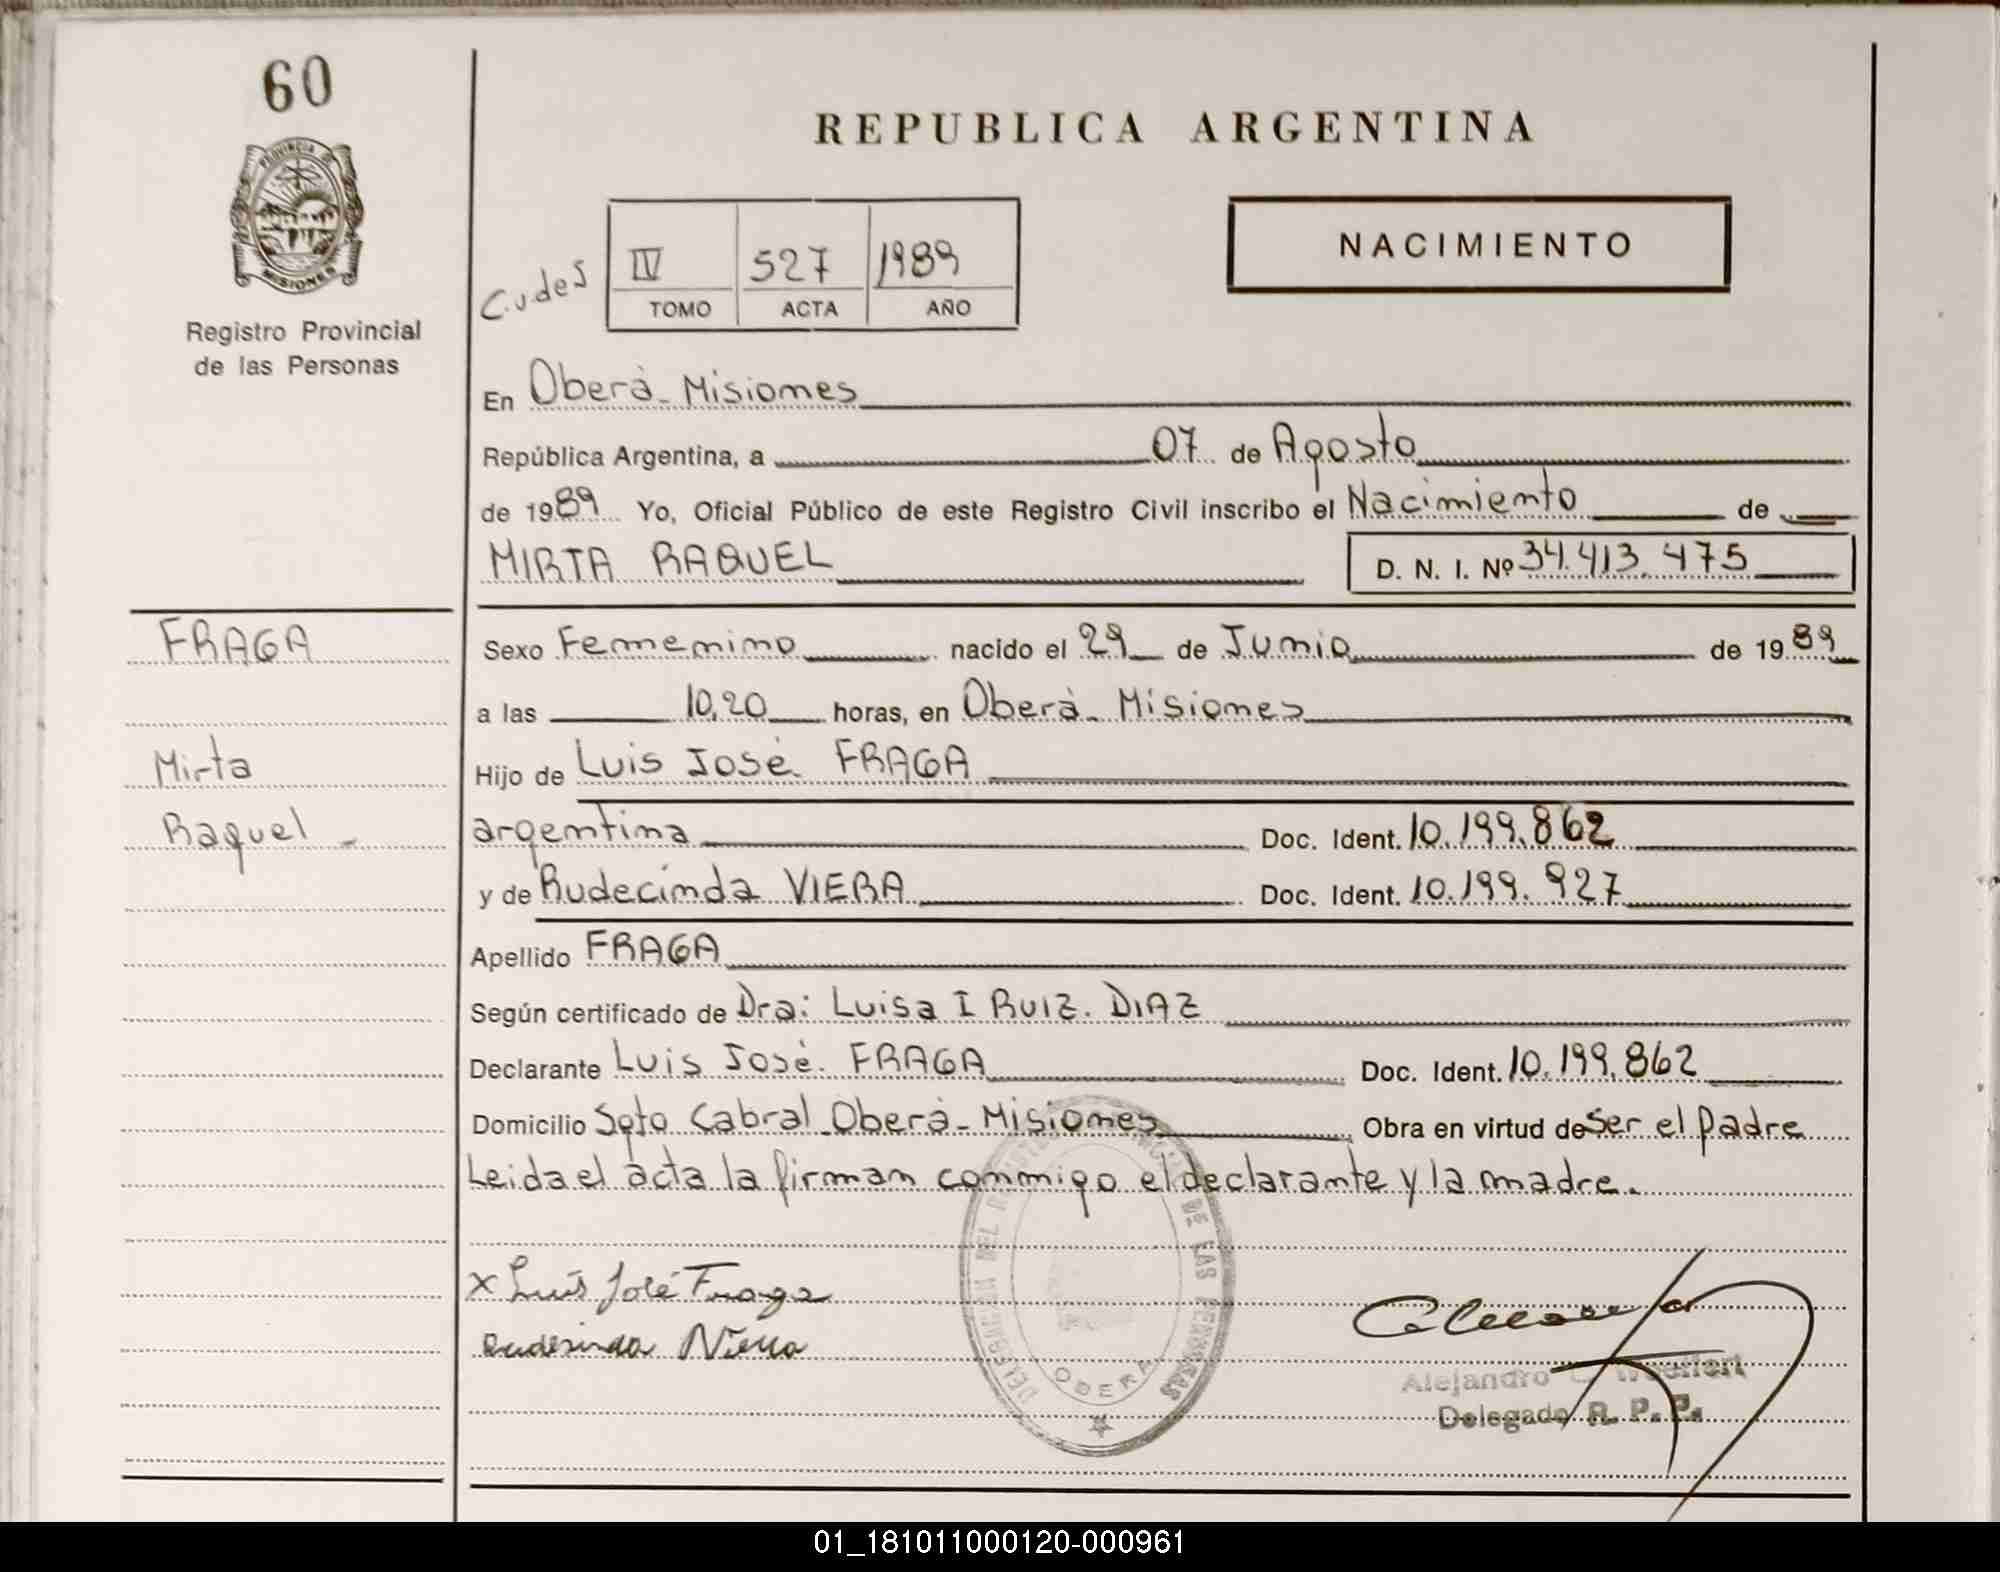 60
PROVINCIA DE
MISIONES
Registro Provincial
de las Personas
REPUBLICA ARGENTINA
NACIMIENTO
IV 527 1989
TOMO ACTA AÑO
En Oberà - Misiones
República Argentina, a 07 de Agosto
de 1989 Yo, Oficial Público de este Registro Civil inscribo el Nacimiento de
MIRTA RAQUEL D. N. I. Nº 34.413.475
FRAGA
Mirta
Raquel -
Sexo Femenino nacido el 29 de Junio de 1989
a las 10,20 horas, en Oberà - Misiones
Hijo de Luis José FRAGA
argentina Doc. Ident. 10.199.862
y de Rudecinda VIERA Doc. Ident. 10.199.927
Apellido FRAGA
Según certificado de Dra: Luisa I RUIZ. DIAZ
Declarante Luis José. FRAGA Doc. Ident. 10.199.862
Domicilio Soto Cabral Oberà - Misiones Obra en virtud de Ser el padre
Leida el acta la firman conmigo el declarante y la madre.
x Luis José Fraga
Rudesinda Vierra
DE LAS PERSONAS
OBERA
Alejandro
Delegado R. P. P.
01_181011000120-000961